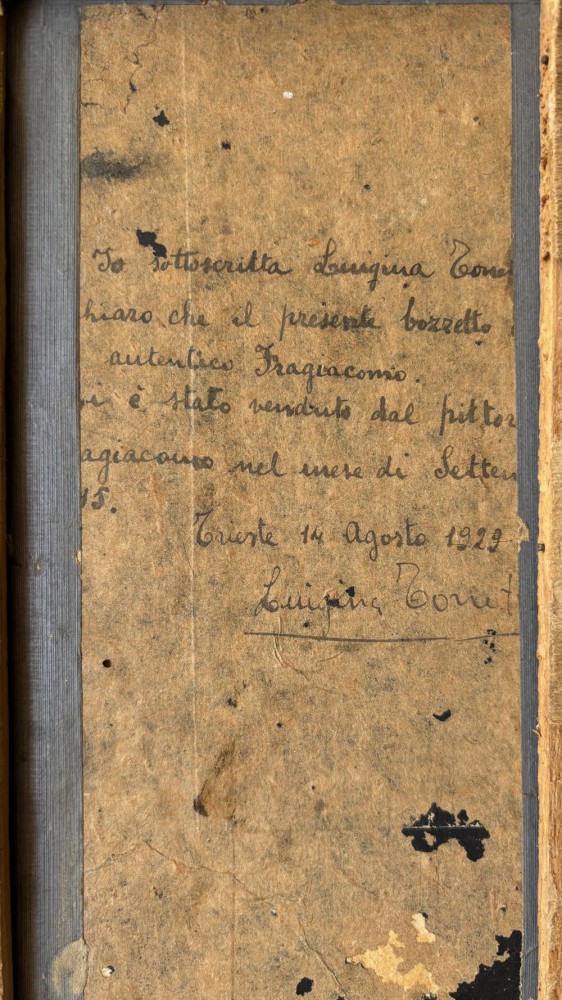 Io sottoscritta Luigina Tone
hiaro che il presente bozzetto
autentico Fragiacomo.
i è stato venduto dal pittor
agiacomo nel mese di Settem
15.
Trieste 14 Agosto 1929
Luigina Tonet